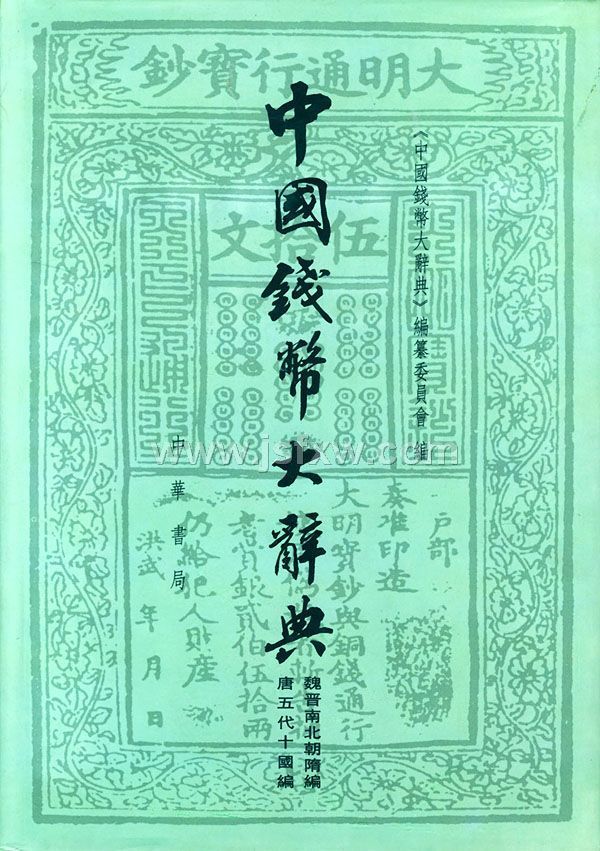 大明通行寶鈔
中國錢幣大辭典
《中國錢幣大辭典》編纂委員會 編
魏晉南北朝隋編
唐五代十國編
中華書局
伍拾文
戶部
奏准印造
大明寶鈔與銅錢通行
者賞銀貳佰伍拾兩
仍給犯人財產
洪武 年 月 日
www.jsfxw.com